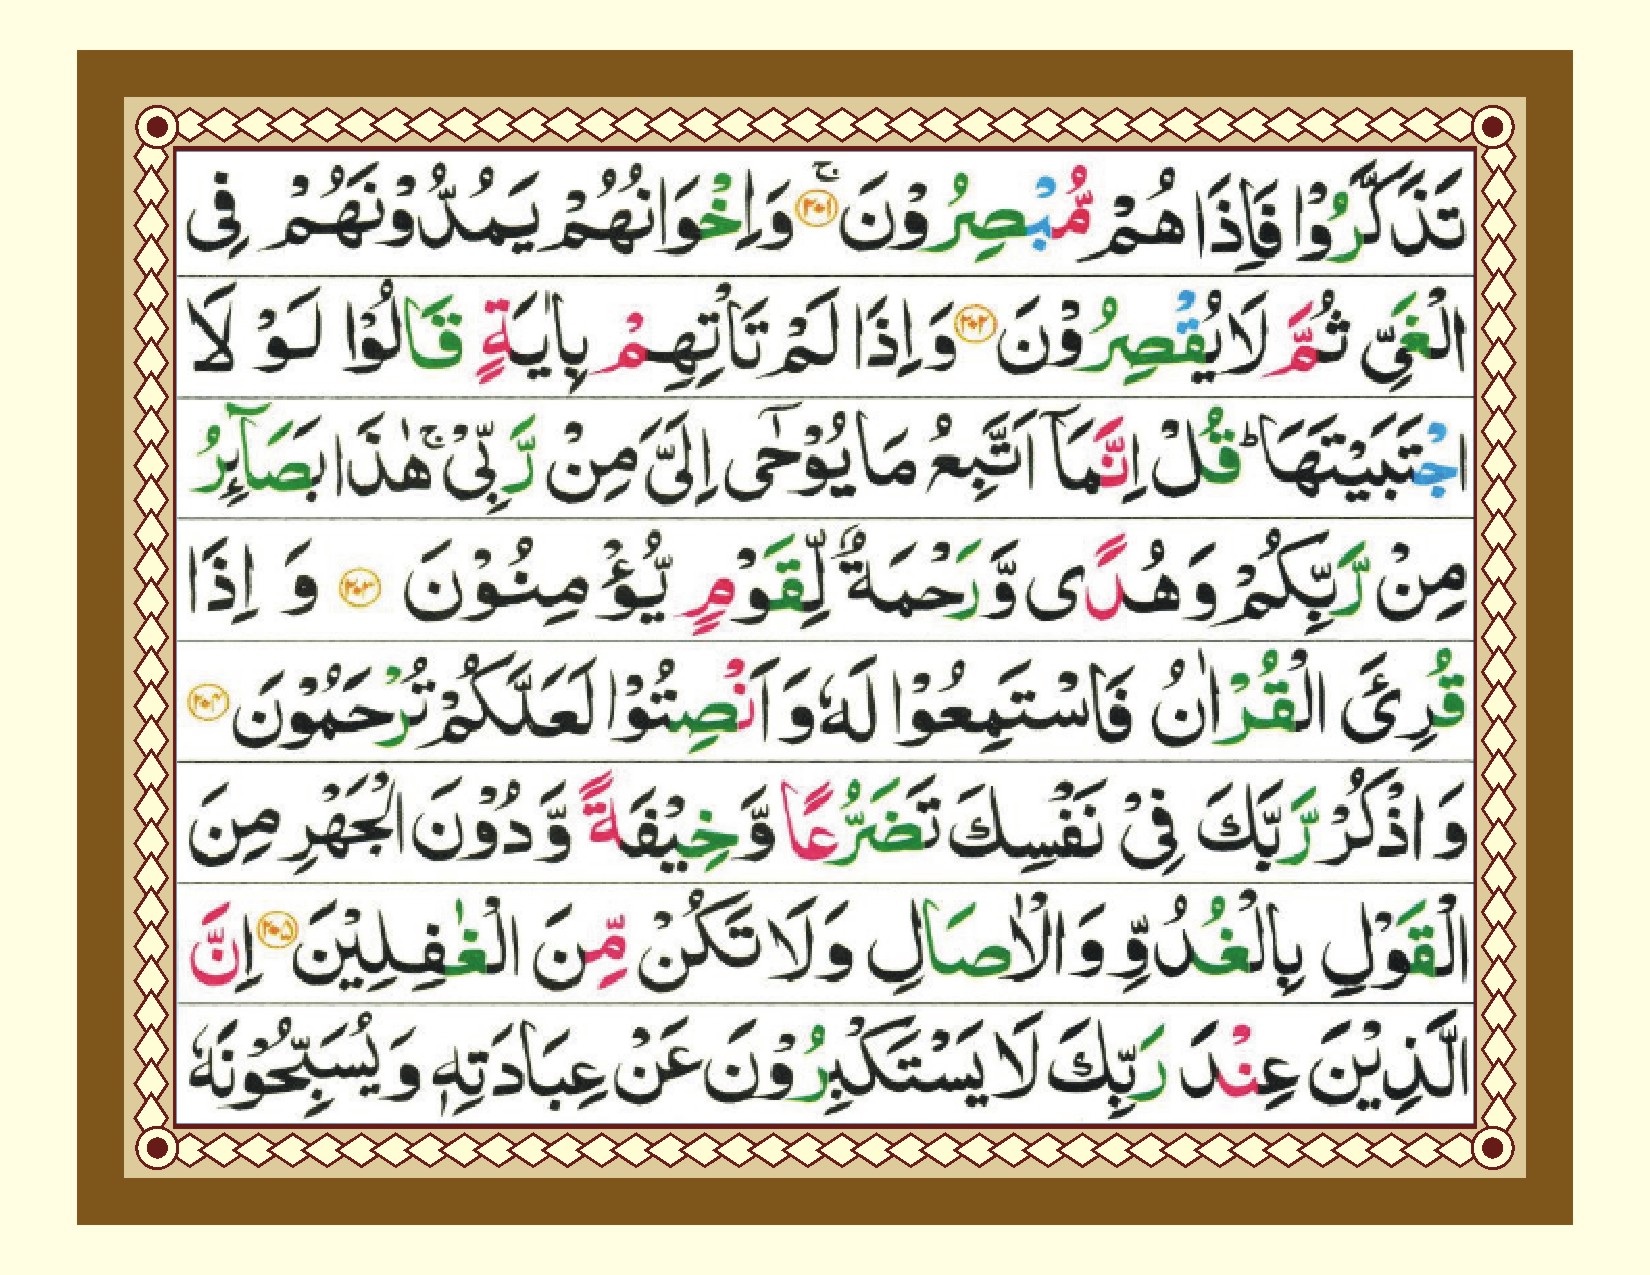 تَذَكَّرُوْا فَاِذَا هُمْ مُّبْصِرُوْنَ ۚ ﴿۲۰۱﴾ وَاِخْوَانُهُمْ يَمُدُّوْنَهُمْ فِى
الْغَىِّ ثُمَّ لَا يُقْصِرُوْنَ ﴿۲۰۲﴾ وَاِذَا لَمْ تَاْتِهِمْ بِاٰيَةٍ قَالُوْا لَوْ لَا
اجْتَبَيْتَهَا ؕ قُلْ اِنَّمَاۤ اَتَّبِعُ مَا يُوْحٰٓى اِلَىَّ مِنْ رَّبِّىْ ۚ هٰذَا بَصَآئِرُ
مِنْ رَّبِّكُمْ وَهُدًى وَّرَحْمَةٌ لِّقَوْمٍ يُّؤْمِنُوْنَ ﴿۲۰۳﴾ وَ اِذَا
قُرِئَ الْقُرْاٰنُ فَاسْتَمِعُوْا لَهٗ وَ اَنْصِتُوْا لَعَلَّكُمْ تُرْحَمُوْنَ ﴿۲۰۴﴾
وَ اذْكُرْ رَّبَّكَ فِىْ نَفْسِكَ تَضَرُّعًا وَّخِيْفَةً وَّدُوْنَ الْجَهْرِ مِنَ
الْقَوْلِ بِالْغُدُوِّ وَ الْاٰصَالِ وَلَا تَكُنْ مِّنَ الْغٰفِلِيْنَ ﴿۲۰۵﴾ اِنَّ
الَّذِيْنَ عِنْدَ رَبِّكَ لَا يَسْتَكْبِرُوْنَ عَنْ عِبَادَتِهٖ وَيُسَبِّحُوْنَهٗ